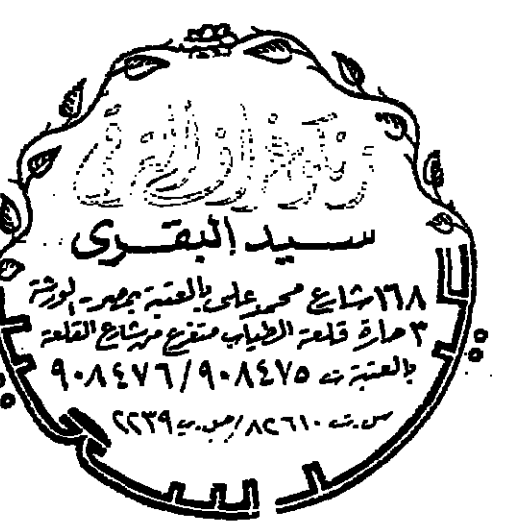 سيد البقرى
١٦٨ شارع محمد على بالعتبة بمصر - الورشة
٣ حارة قلعة الطياب متفرع من شارع القلعة
بالعتبة ت ٩٠٨٤٧٥/٩٠٨٤٧٦
س.ت ٨٢٦١٠/ص.ب ٢٢٣٩